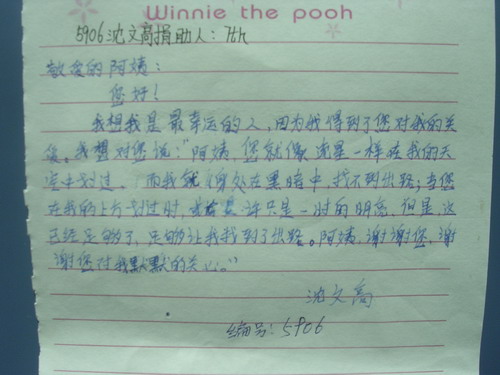 Winnie the pooh
5906沈文高捐助人：7th
敬爱的阿姨：
您好！
我想我是最幸运的人，因为我得到了您对我的关
爱。我想对您说：“阿姨，您就像流星一样在我的天
空中划过。而我身处在黑暗中，找不到出路；当您
在我的上方划过时，或许只是一时的明亮，但是这
已经足够了，足够让我找到了出路。阿姨，谢谢您，谢
谢您对我默默的关心。”
沈文高
编号：5906